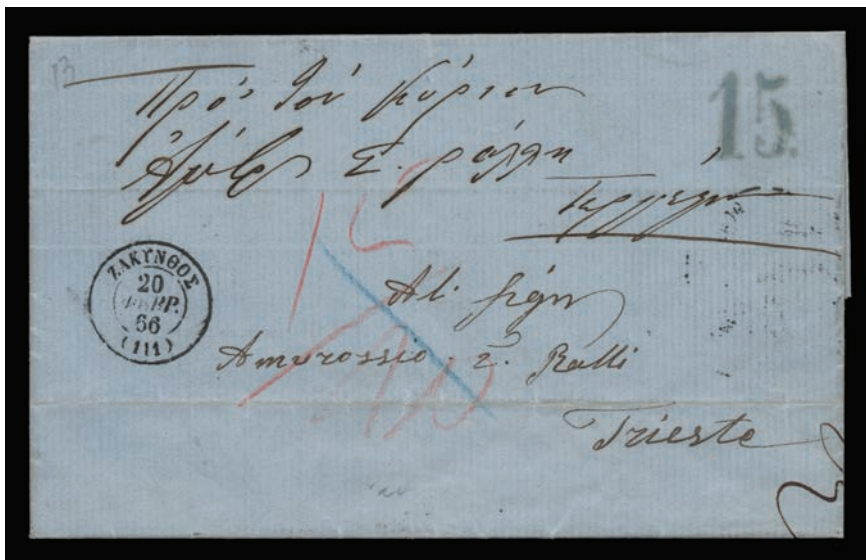 13
15.
Πρὸς τὸν Κύριον
Ἀμβρ Σ. Ράλλη
Τεργέστην
ΖΑΚΥΝΘΟΣ
20
ΦΕΒΡ.
66
(111)
15
Al. Sigr
Amvrossio. Σ. Ralli
Trieste